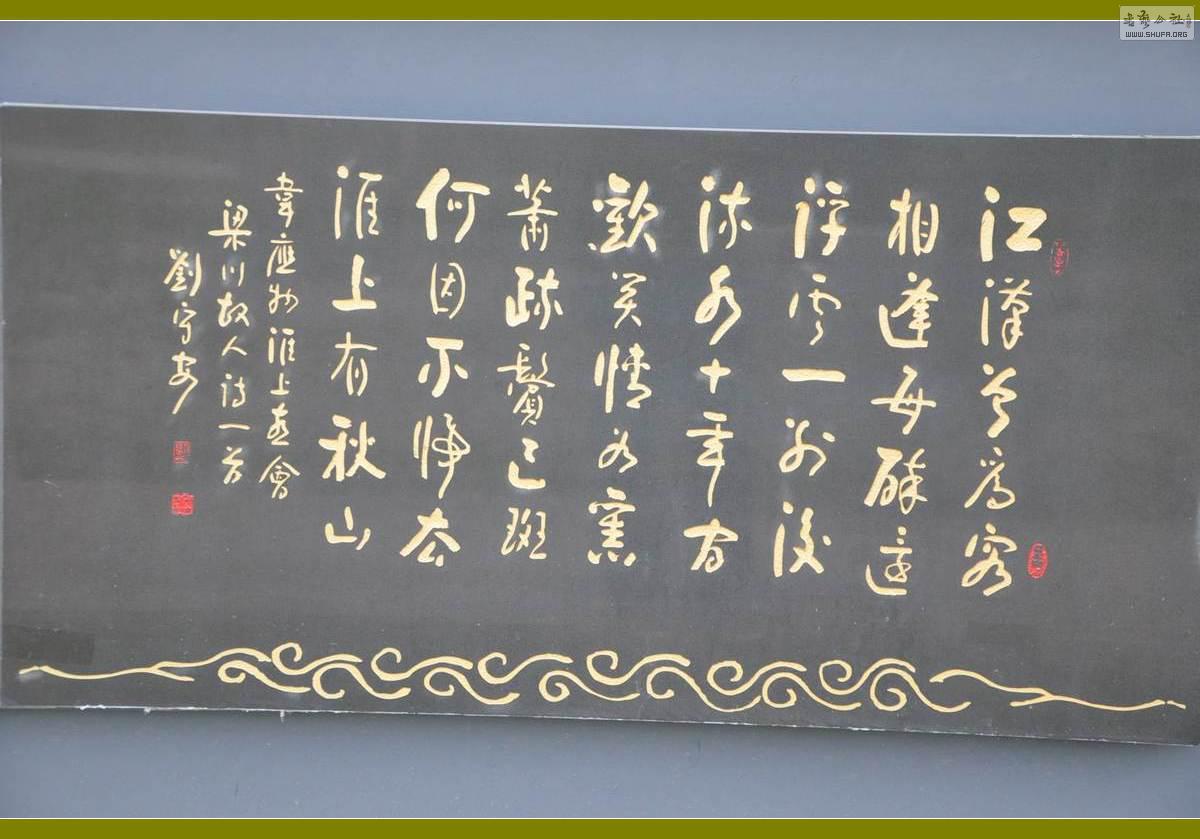 江漢曾爲客
相逢每醉還
浮雲一別後
流水十年間
歡笑情如舊
蕭疎鬢已斑
何因不歸去
淮上有秋山
韋應物淮上喜會
梁川故人詩一首
劉守安
書藝公社
WWW.SHUFA.ORG